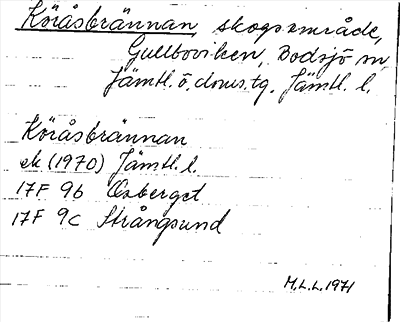 Köråsbrännan, skogsområde,
Gullboviken, Bodsjö sn,
Jämtl. ö. doms. tg. Jämtl. l.
Köråsbrännan
ek (1970) Jämtl. l.
17F 9b Åsberget
17F 9c Strångsund
M.L.L. 1971